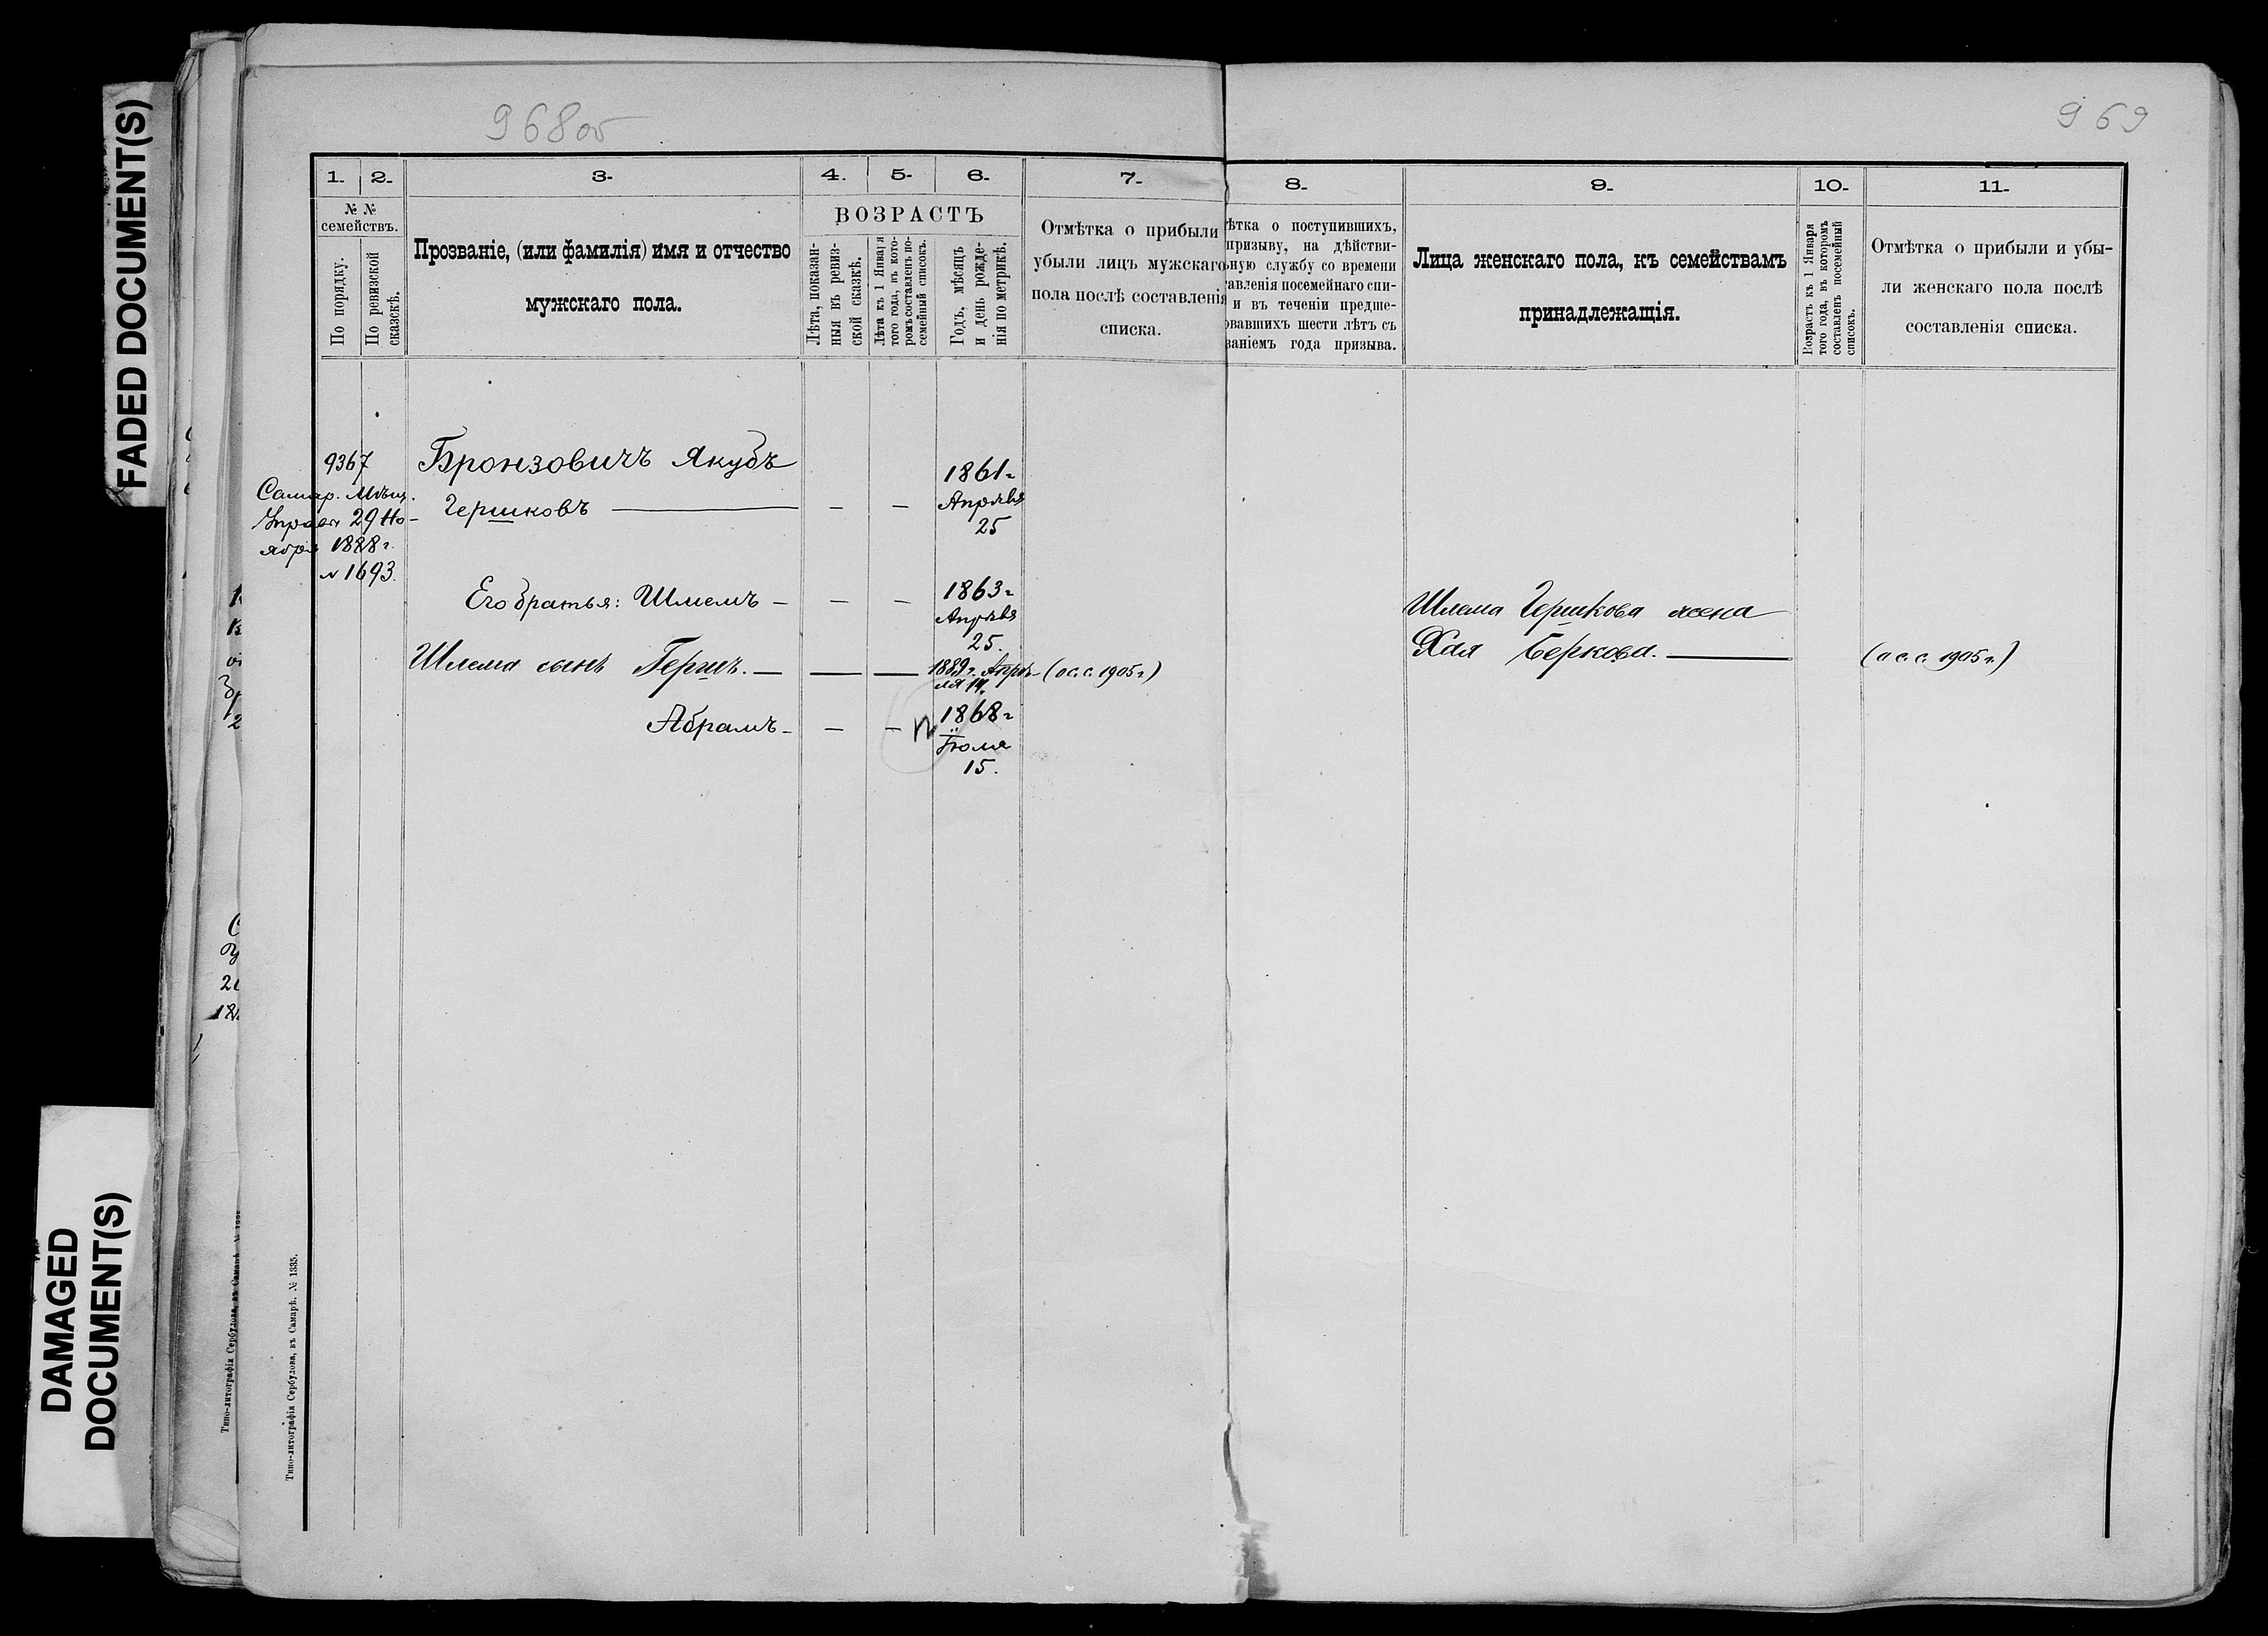 FADED DOCUMENT(S)
DAMAGED
DOCUMENT(S)
968об
969
1. 2. 3. 4. 5. 6. 7. 8. 9. 10. 11.
№ №
семействъ.
По порядку.
По ревизской
сказскѣ.
Прозваніе, (или фамилія) имя и отчество
мужскаго пола.
ВОЗРАСТЪ
Лѣта, показан-
ныя въ ревиз-
ской сказкѣ.
Лѣта къ 1 Января
того года, въ кото-
ромъ составленъ по-
семейный списокъ.
Годъ, мѣсяцъ
и день рожде-
нія по метрикѣ.
Отмѣтка о прибыли
убыли лицъ мужскаго
пола послѣ составленія
списка.
ѣтка о поступившихъ,
призыву, на дѣйстви-
ьную службу со времени
тавленія посемейнаго спи-
и въ теченіи предше-
овавшихъ шести лѣтъ съ
ваніемъ года призыва.
Лица женскаго пола, къ семействамъ
принадлежащія.
Возрастъ къ 1 Января
того года, въ которомъ
составленъ посемейный
списокъ.
Отмѣтка о прибыли и убы-
ли женскаго пола послѣ
составленія списка.
9367
Самар. Мѣщ.
Управы 29 Но-
ября 1888 г.
№ 1693.
Бронзовичъ Якубъ
Гершковъ — — —
1861 г
Апрѣля
25
Его братья: Шлемъ — — —
1863 г
Апрѣля
25.
Шлема сынъ Гершъ. — — —
1889 г. Апрѣ-
ля 14.
(о с. с. 1905 г)
Абрамъ — — —
1868 г
Іюля
15.
Шлема Гершкова жена
Хая Беркова. —
(о с. с. 1905 г.)
Типо-литографія Сербулова, въ Самарѣ. № 1335.